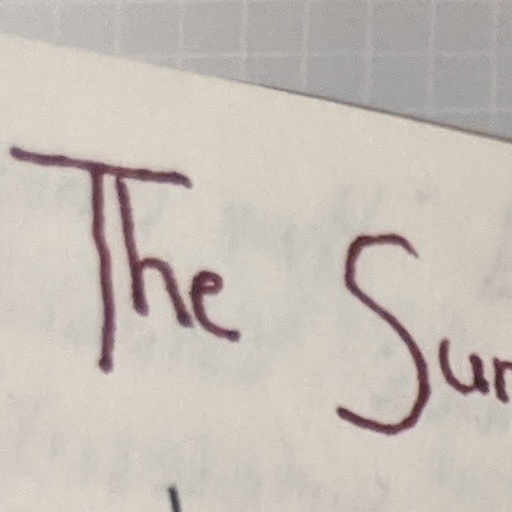 The Sun